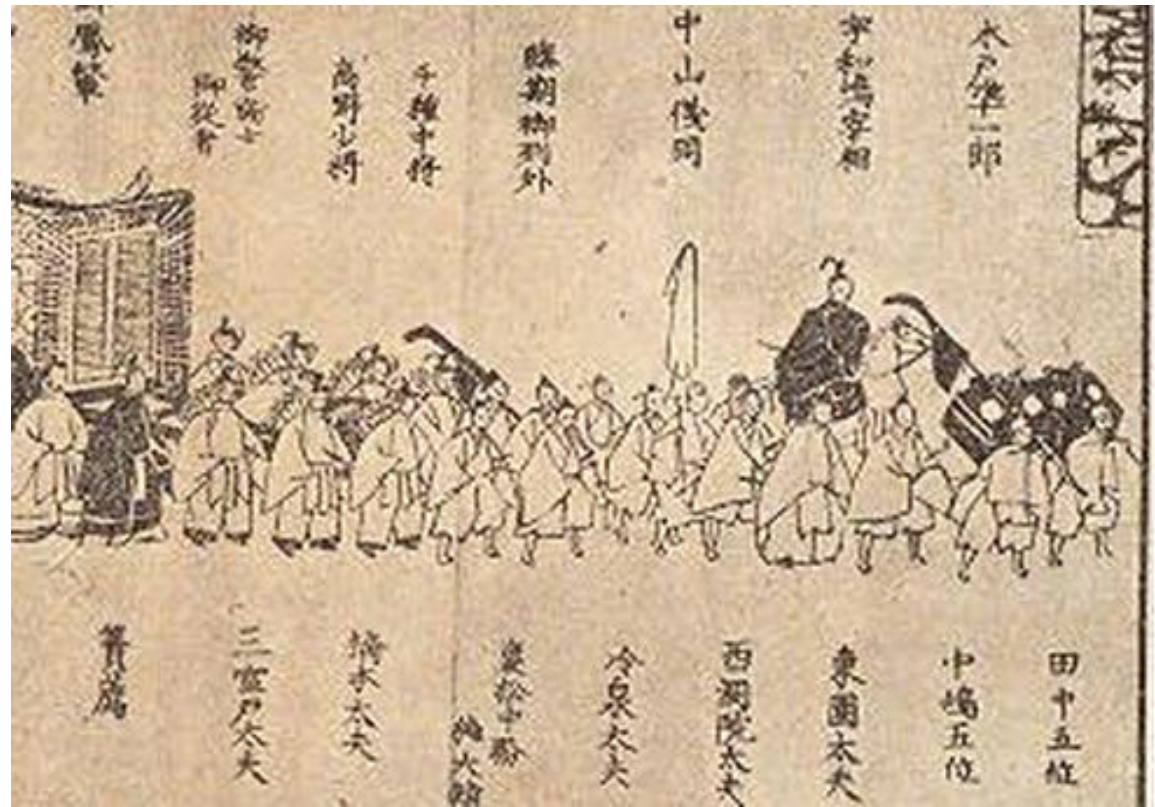 木戸準一郎
宇和嶋宰相
中山儀同
臨期御列外
千種中将
高野少将
御警衛士
御従者
鳳輦
田中五位
中嶋五位
東園太夫
西洞院太夫
冷泉太夫
裏松中務
権大輔
水太夫
三室戸太夫